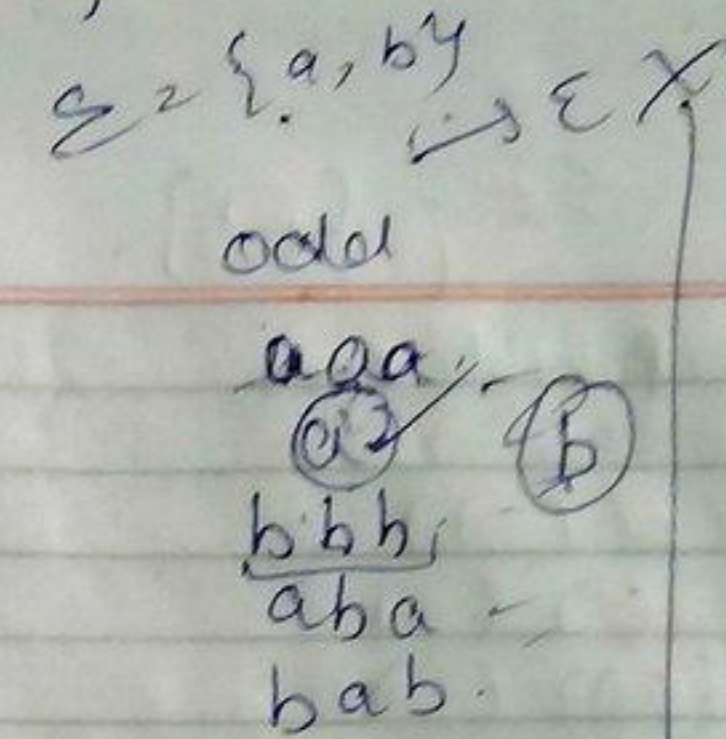 Σ = {a, b}
→ ε X
odd
aaa,
a
b
bbb,
aba
bab.